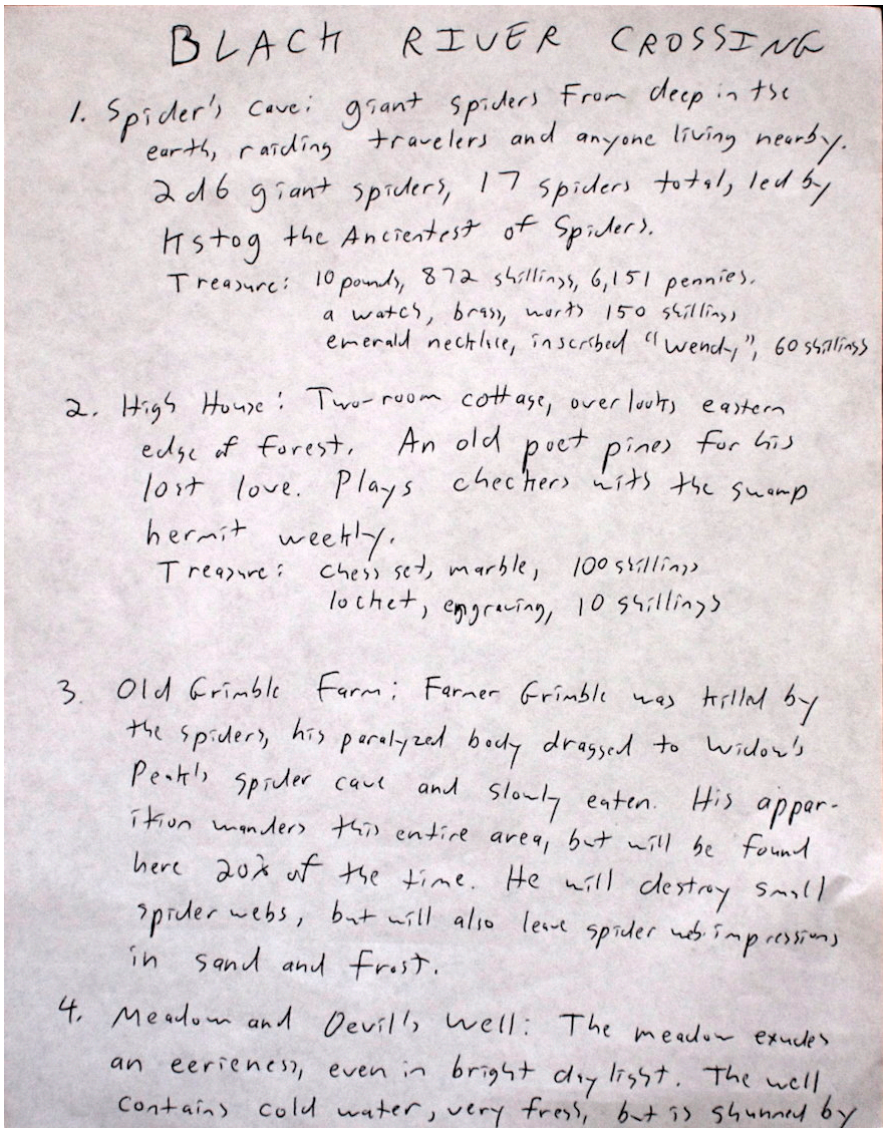 BLACK RIVER CROSSING
1. Spider's cave: giant spiders from deep in the
earth, raiding travelers and anyone living nearby.
2d6 giant spiders, 17 spiders total, led by
Kstog the Ancientest of Spiders.
Treasure: 10 pounds, 872 shillings, 6,151 pennies.
a watch, brass, worth 150 shillings
emerald necklace, inscribed "Wendy", 60 shillings
2. High House: Two-room cottage, overlooks eastern
edge of forest. An old poet pines for his
lost love. Plays checkers with the swamp
hermit weekly.
Treasure: chess set, marble, 100 shillings
locket, engraving, 10 shillings
3. Old Grimble Farm: Farmer Grimble was killed by
the spiders, his paralyzed body dragged to Widow's
Peak's spider cave and slowly eaten. His appar-
ition wanders this entire area, but will be found
here 20% of the time. He will destroy small
spider webs, but will also leave spider web impressions
in sand and frost.
4. Meadow and Devil's Well: The meadow exudes
an eerieness, even in bright daylight. The well
contains cold water, very fresh, but is shunned by